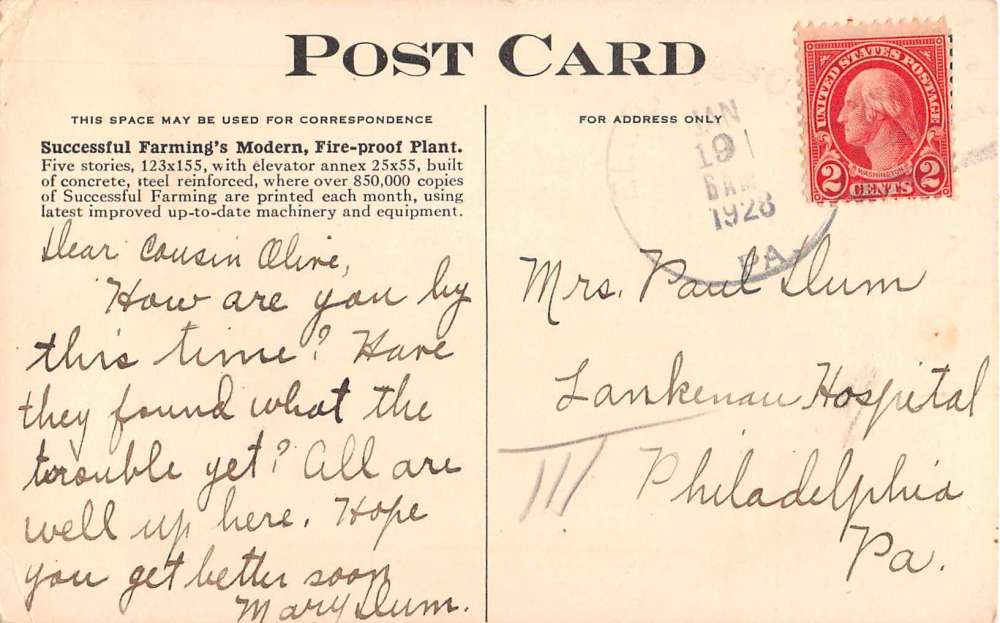 POST CARD
THIS SPACE MAY BE USED FOR CORRESPONDENCE
Successful Farming's Modern, Fire-proof Plant.
Five stories, 123x155, with elevator annex 25x55, built
of concrete, steel reinforced, where over 850,000 copies
of Successful Farming are printed each month, using
latest improved up-to-date machinery and equipment.
Dear Cousin Olive,
How are you by
this time? Have
they found what the
trouble yet? All are
well up here. Hope
you get better soon
Mary Dum.
FOR ADDRESS ONLY
19
6 AM
1928
PA.
UNITED STATES POSTAGE
WASHINGTON
2 CENTS 2
Mrs. Paul Dum
Lankenau Hospital
III
Philadelphia
Pa.